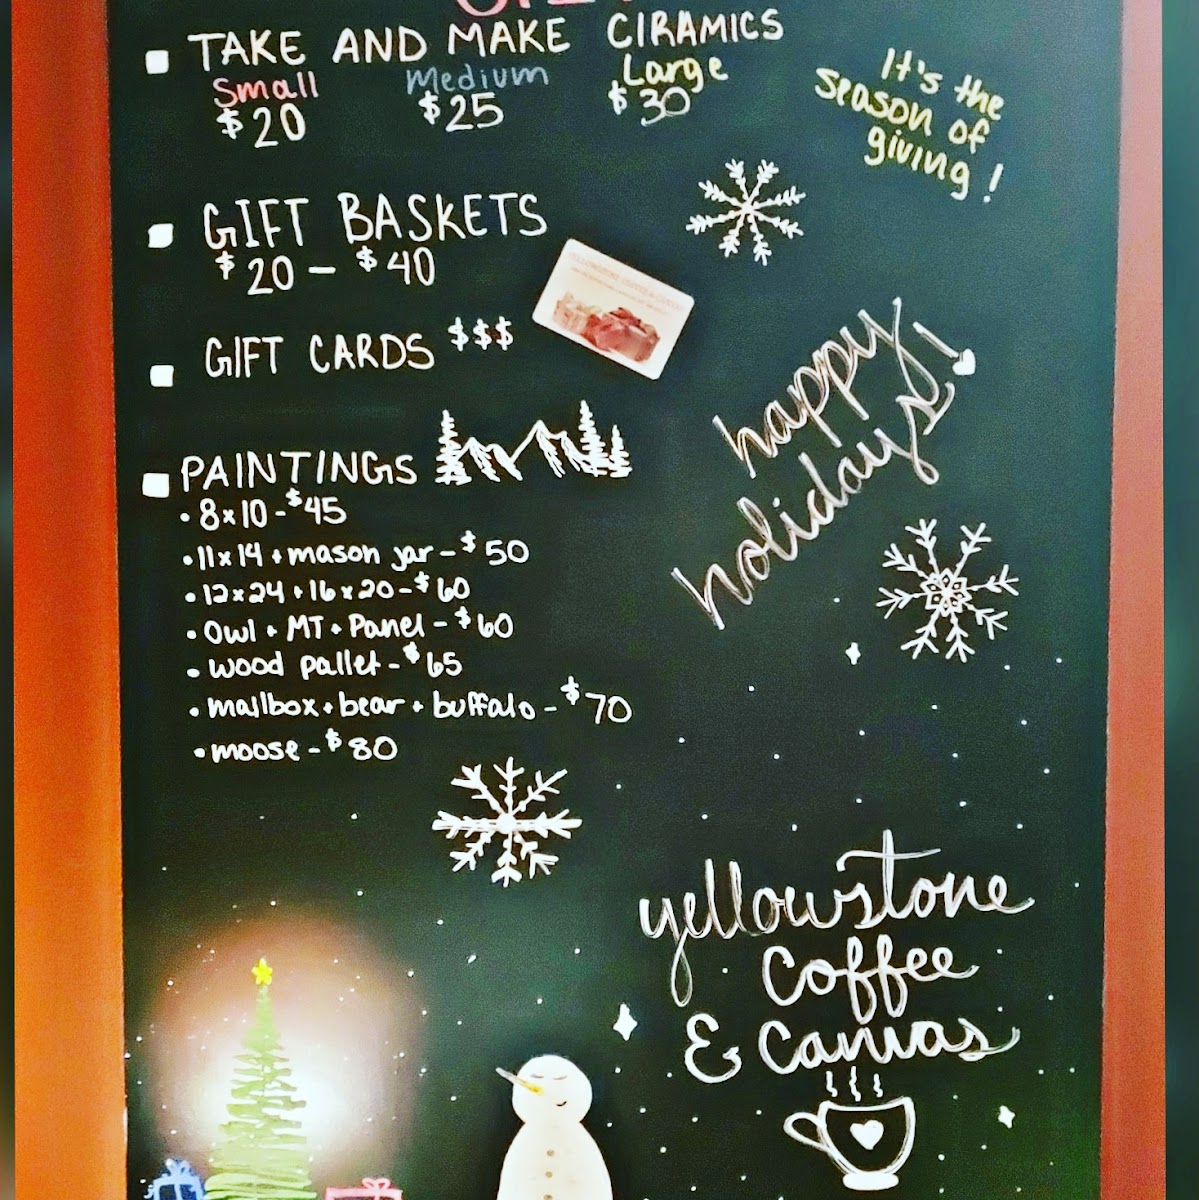 TAKE AND MAKE CIRAMICS
Small Medium Large
$20 $25 $30
It's the
season of
giving!
GIFT BASKETS
$20 - $40
GIFT CARDS $$$
happy
holidays!
PAINTINGS
• 8x10 - $45
• 11x14 + mason jar - $50
• 12x24 + 16x20 - $60
• Owl + MT + Panel - $60
• wood pallet - $65
• mailbox + bear + buffalo - $70
• moose - $80
yellowstone
coffee
& canvas